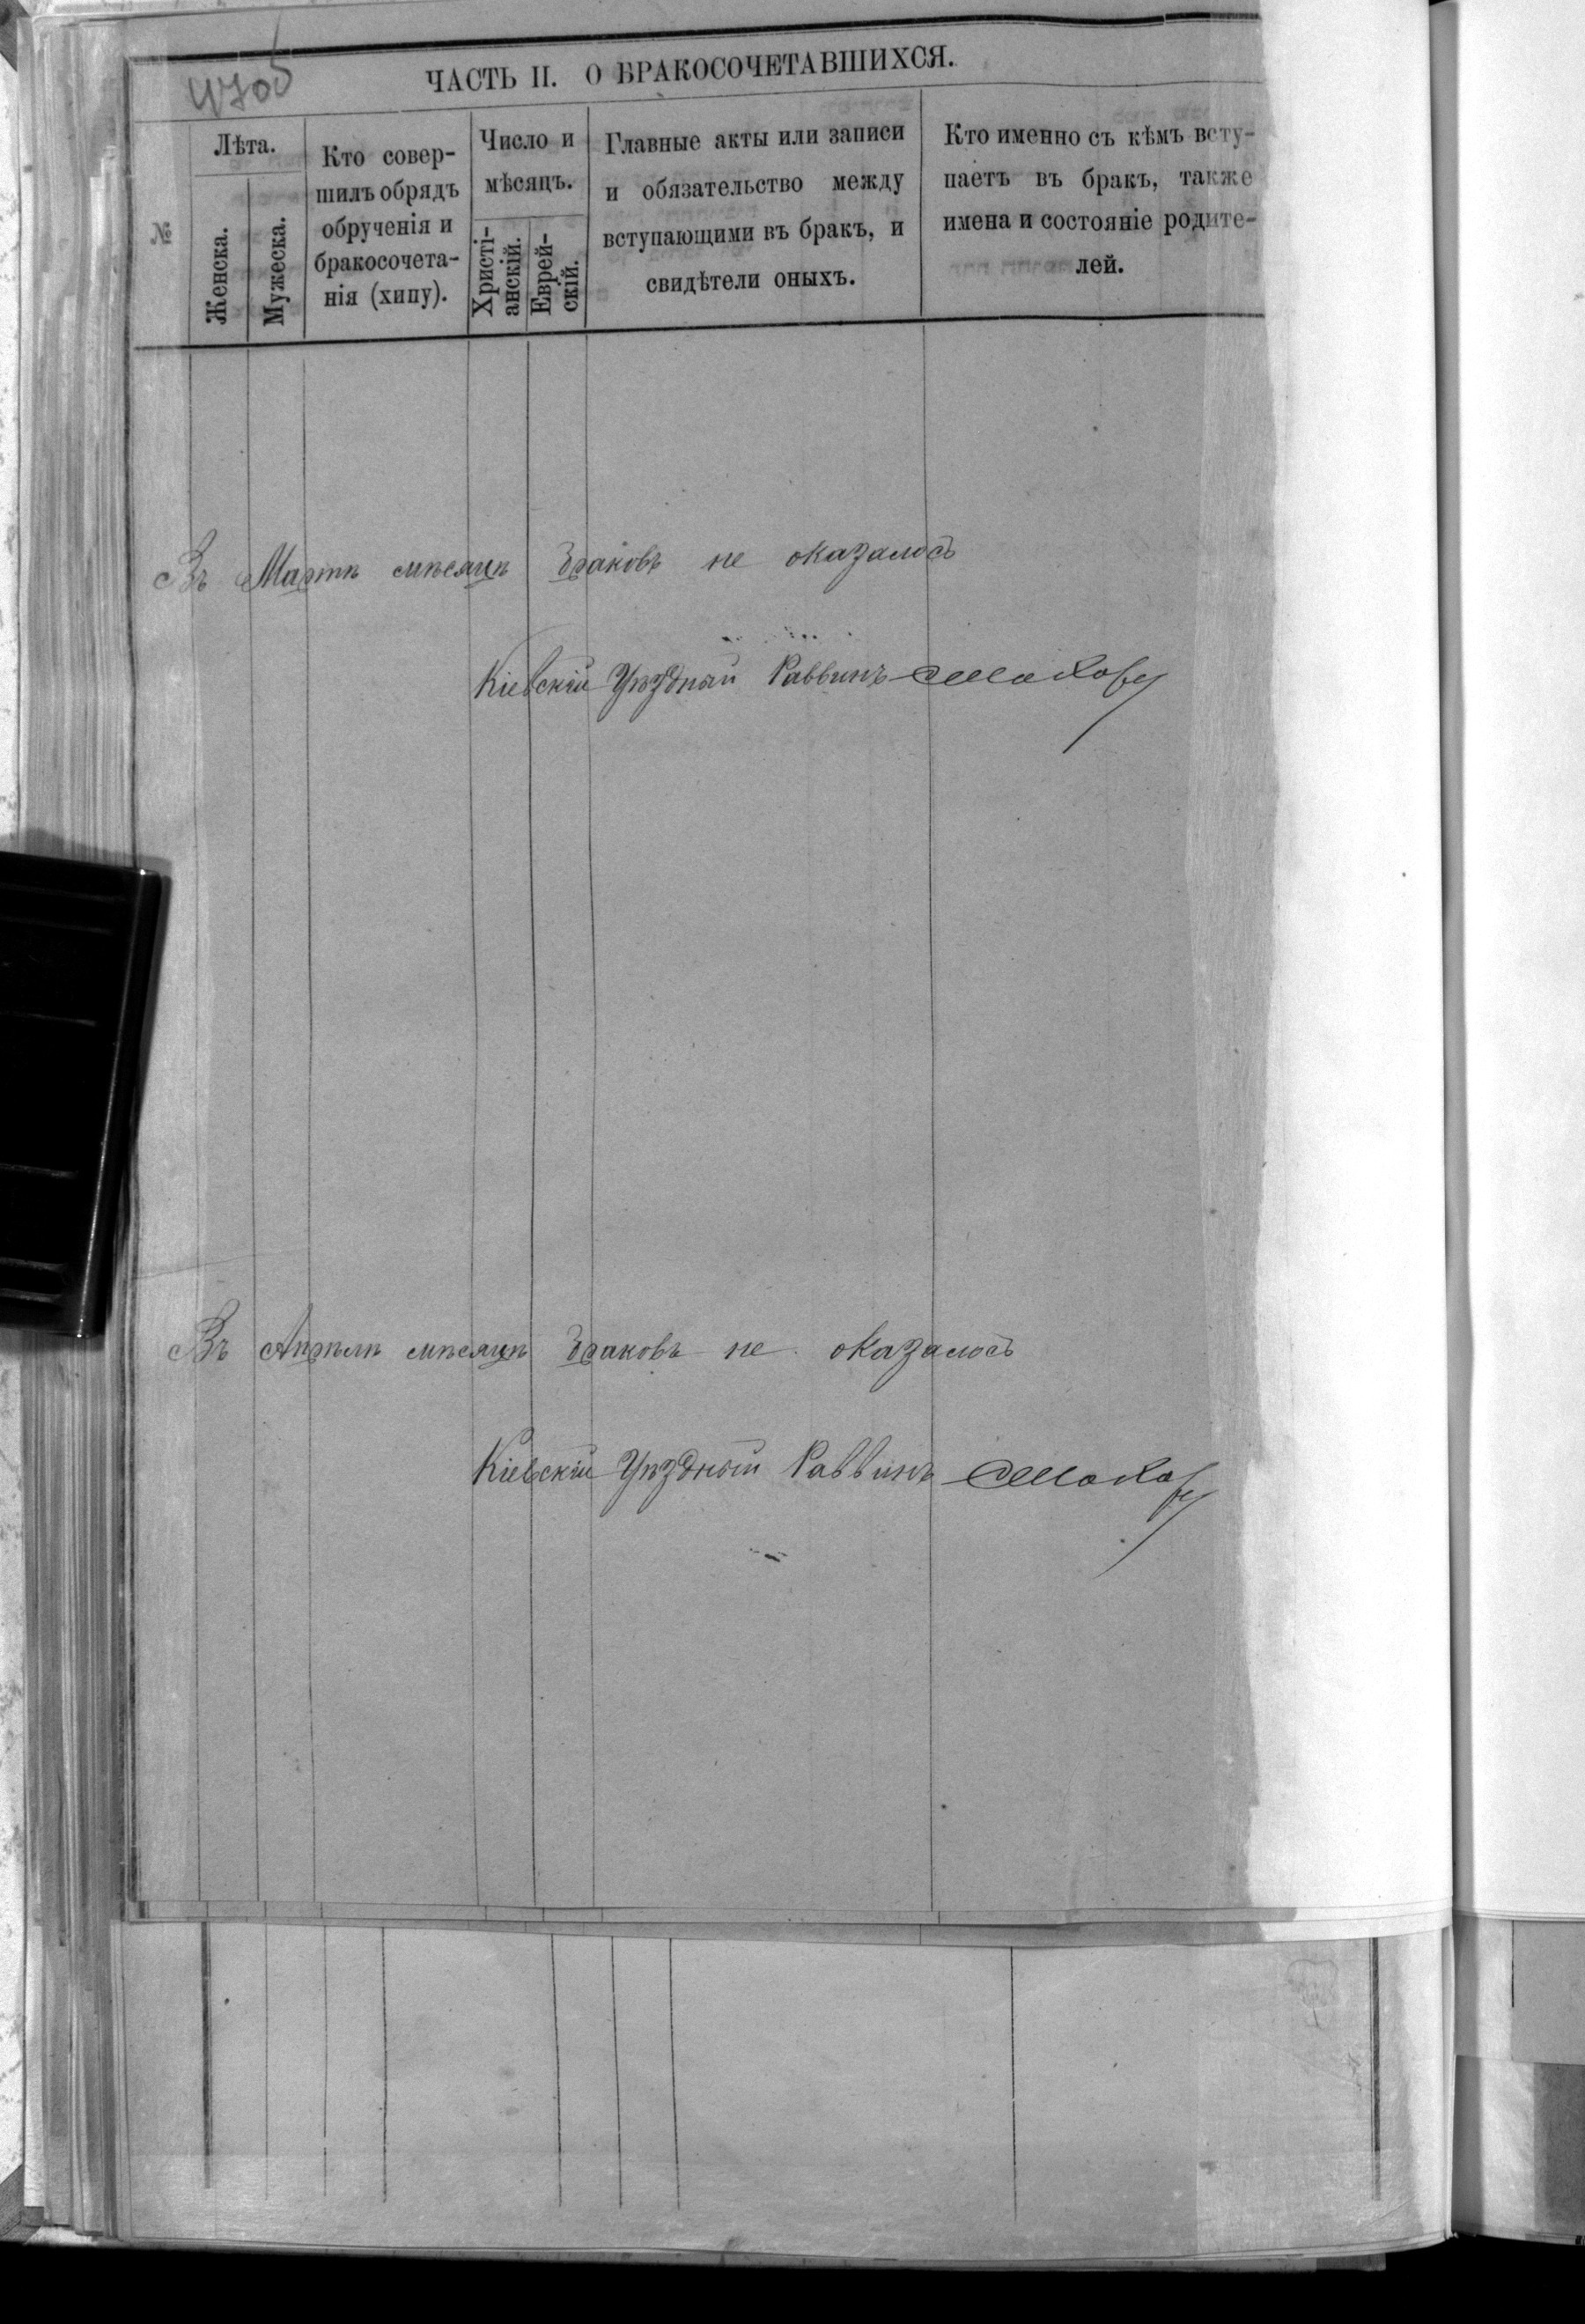 ЧАСТЬ II. О БРАКОСОЧЕТАВШИХСЯ.
№
Лѣта.
Женска.
Мужеска.
Кто совер-
шилъ обрядъ
обрученія и
бракосочета-
нія (хипу).
Число и
мѣсяцъ.
Христі-
анскій.
Еврей-
скій.
Главные акты или записи
и обязательство между
вступающими въ бракъ, и
свидѣтели оныхъ.
Кто именно съ кѣмъ всту-
паетъ въ бракъ, также
имена и состояніе родите-
лей.
Въ Мартѣ мѣсяцѣ браковъ не оказалось
Кіевскій Уѣздный Раввинъ
Въ Апрѣлѣ мѣсяцѣ браковъ не оказалось
Кіевскій Уѣздный Раввинъ